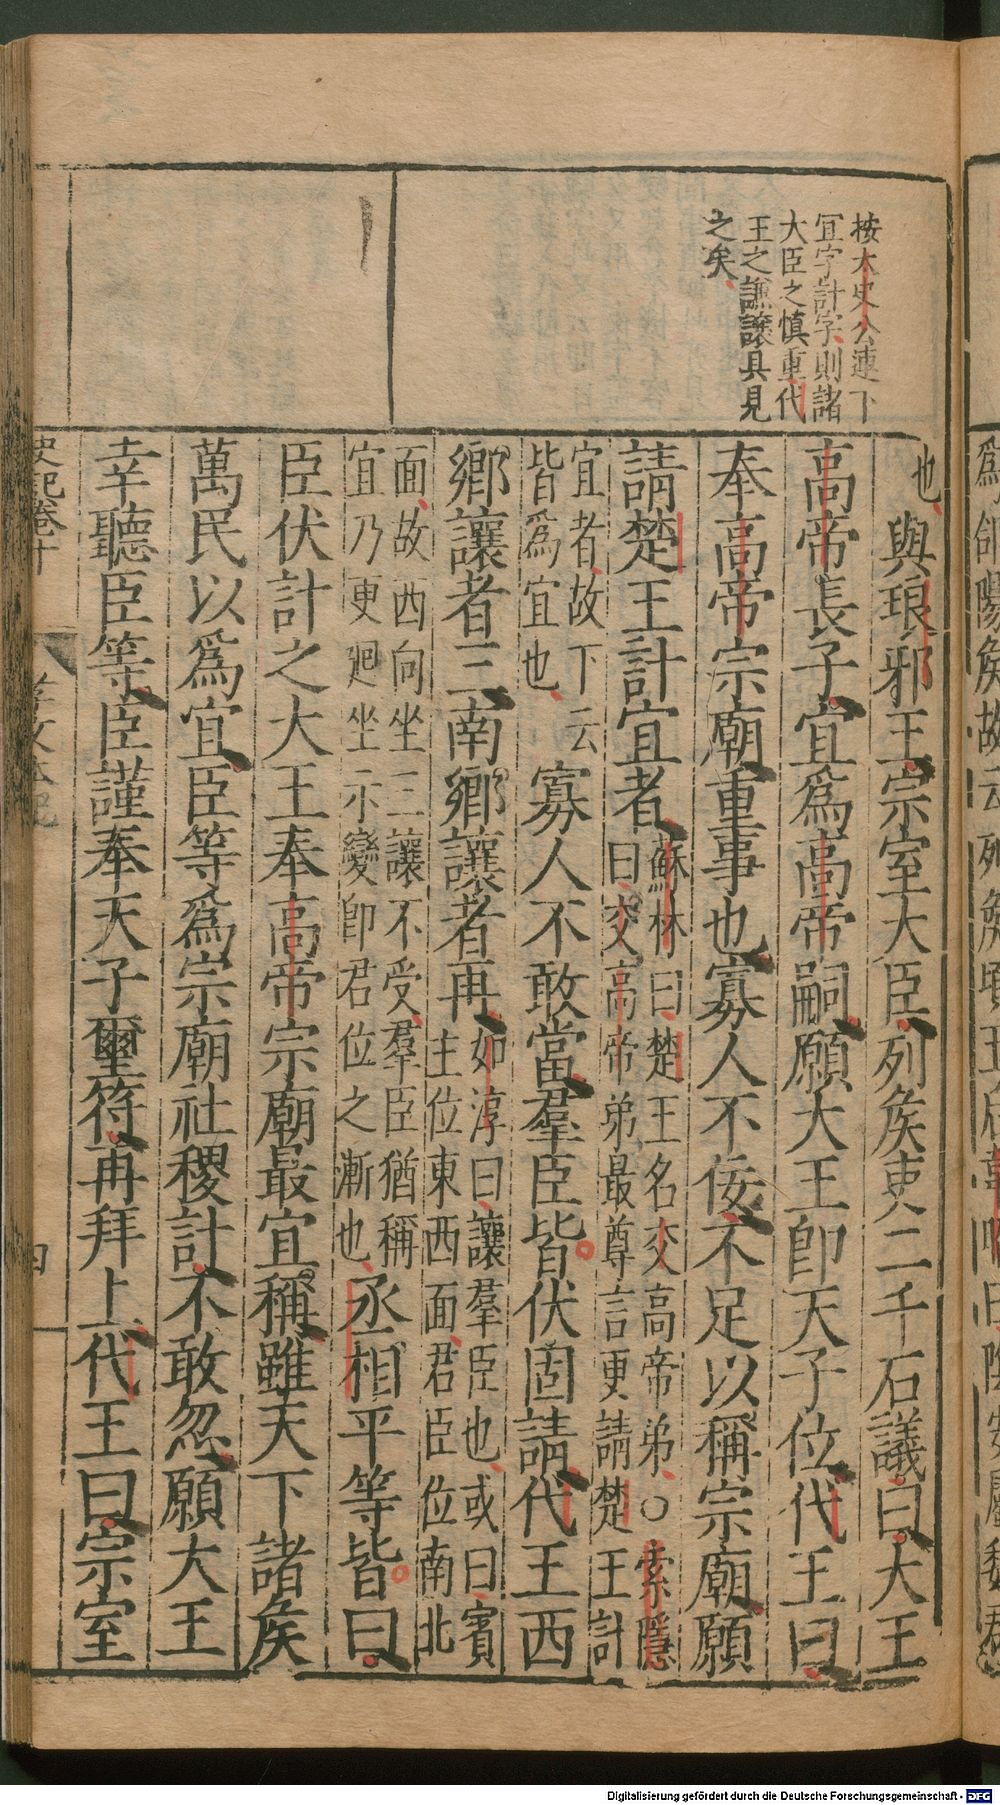 按太史公連下
冝字計字則諸
大臣之慎重代
王之謙讓具見
之矣
也與琅邪王宗室大臣列矦吏二千石議曰大王
高帝長子宜爲高帝嗣願大王即天子位代王曰
奉高帝宗廟重事也寡人不佞不足以稱宗廟願
請楚王計宜者蘇林曰楚王名交高帝弟○索隱
曰交高帝弟最尊言更請楚王計
宜者故下云
皆爲宜也
寡人不敢當羣臣皆伏固請代王西
鄉讓者三南鄉讓者再如淳曰讓羣臣也或曰賓
主位東西面君臣位南北
面故西向坐三讓不受羣臣猶稱
宜乃更廻坐示變即君位之漸也
丞相平等皆曰
臣伏計之大王奉高帝宗廟最宜稱雖天下諸矦
萬民以爲宜臣等爲宗廟社稷計不敢忽願大王
幸聽臣等臣謹奉天子璽符再拜上代王曰宗室
史記卷十
孝文本紀
四
Digitalisierung gefördert durch die Deutsche Forschungsgemeinschaft - DFG